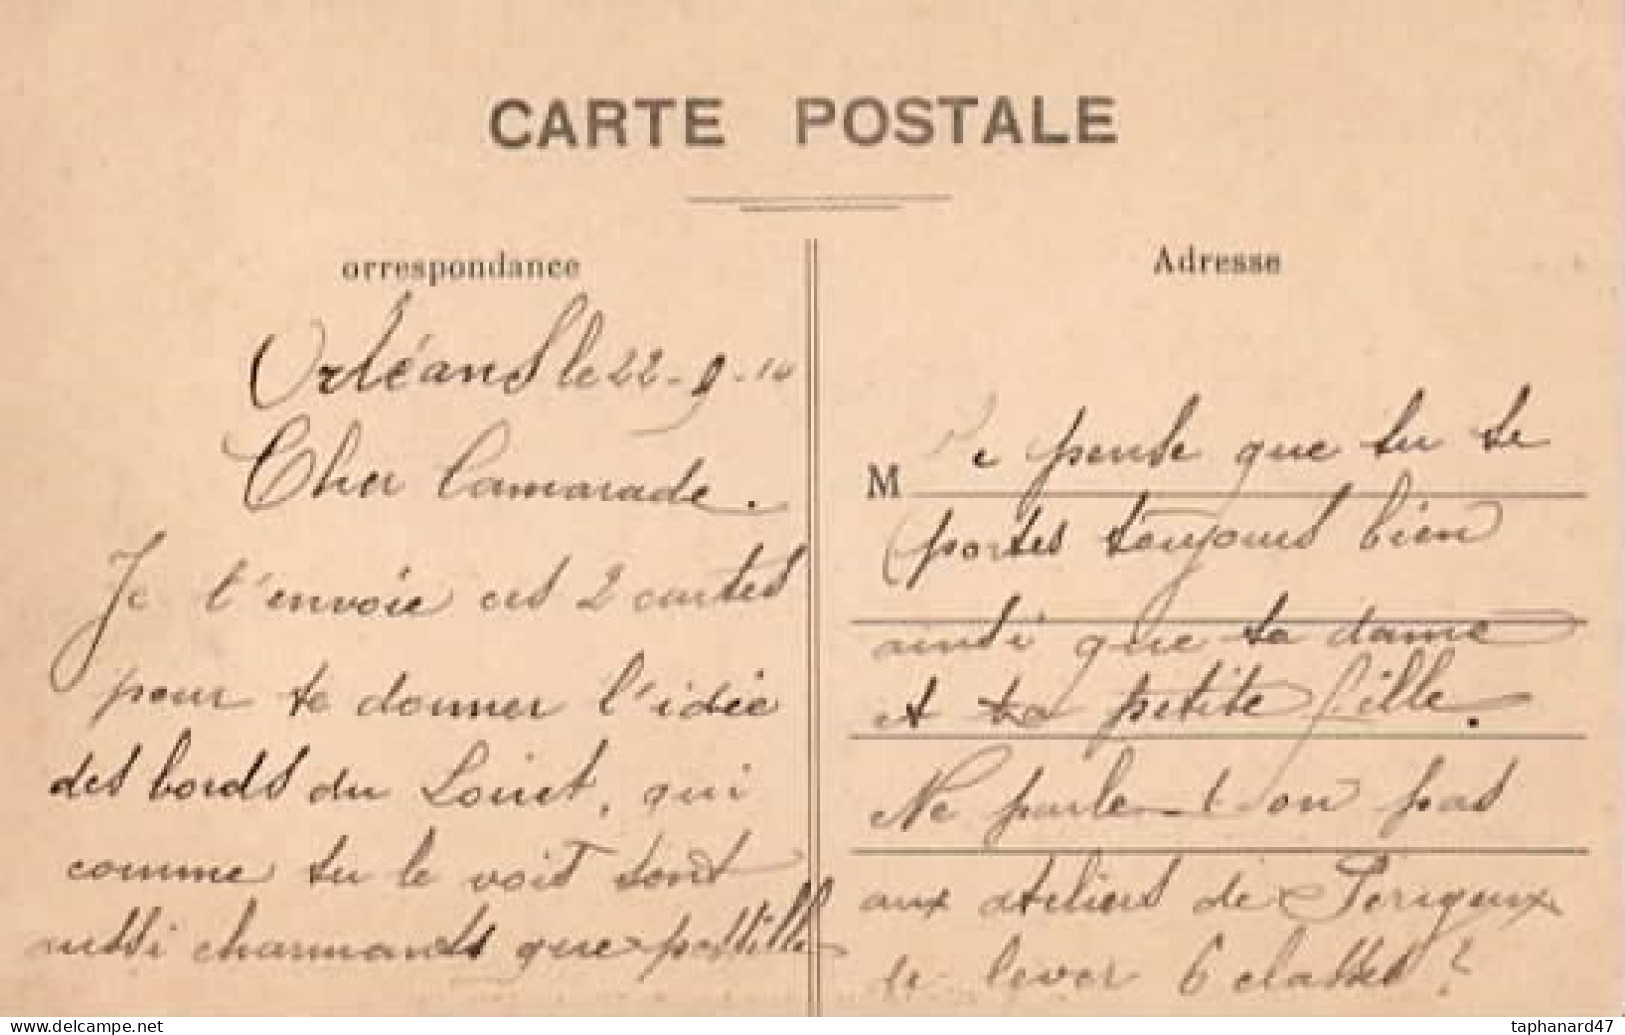 CARTE POSTALE
orrespondance
Orléans le 22-9-14
Cher Camarade.
Je t'envoie ces 2 cartes
pour te donner l'idée
des bords du Loiret, qui
comme tu le voit sont
aussi charmants que possille
Adresse
M
Je pense que tu te
portes toujours bien
ainsi que ta dame
et ta petite fille.
Ne parle-t-on pas
aux ateliers de Perigeux
de lever 6 classes?
taphanard47